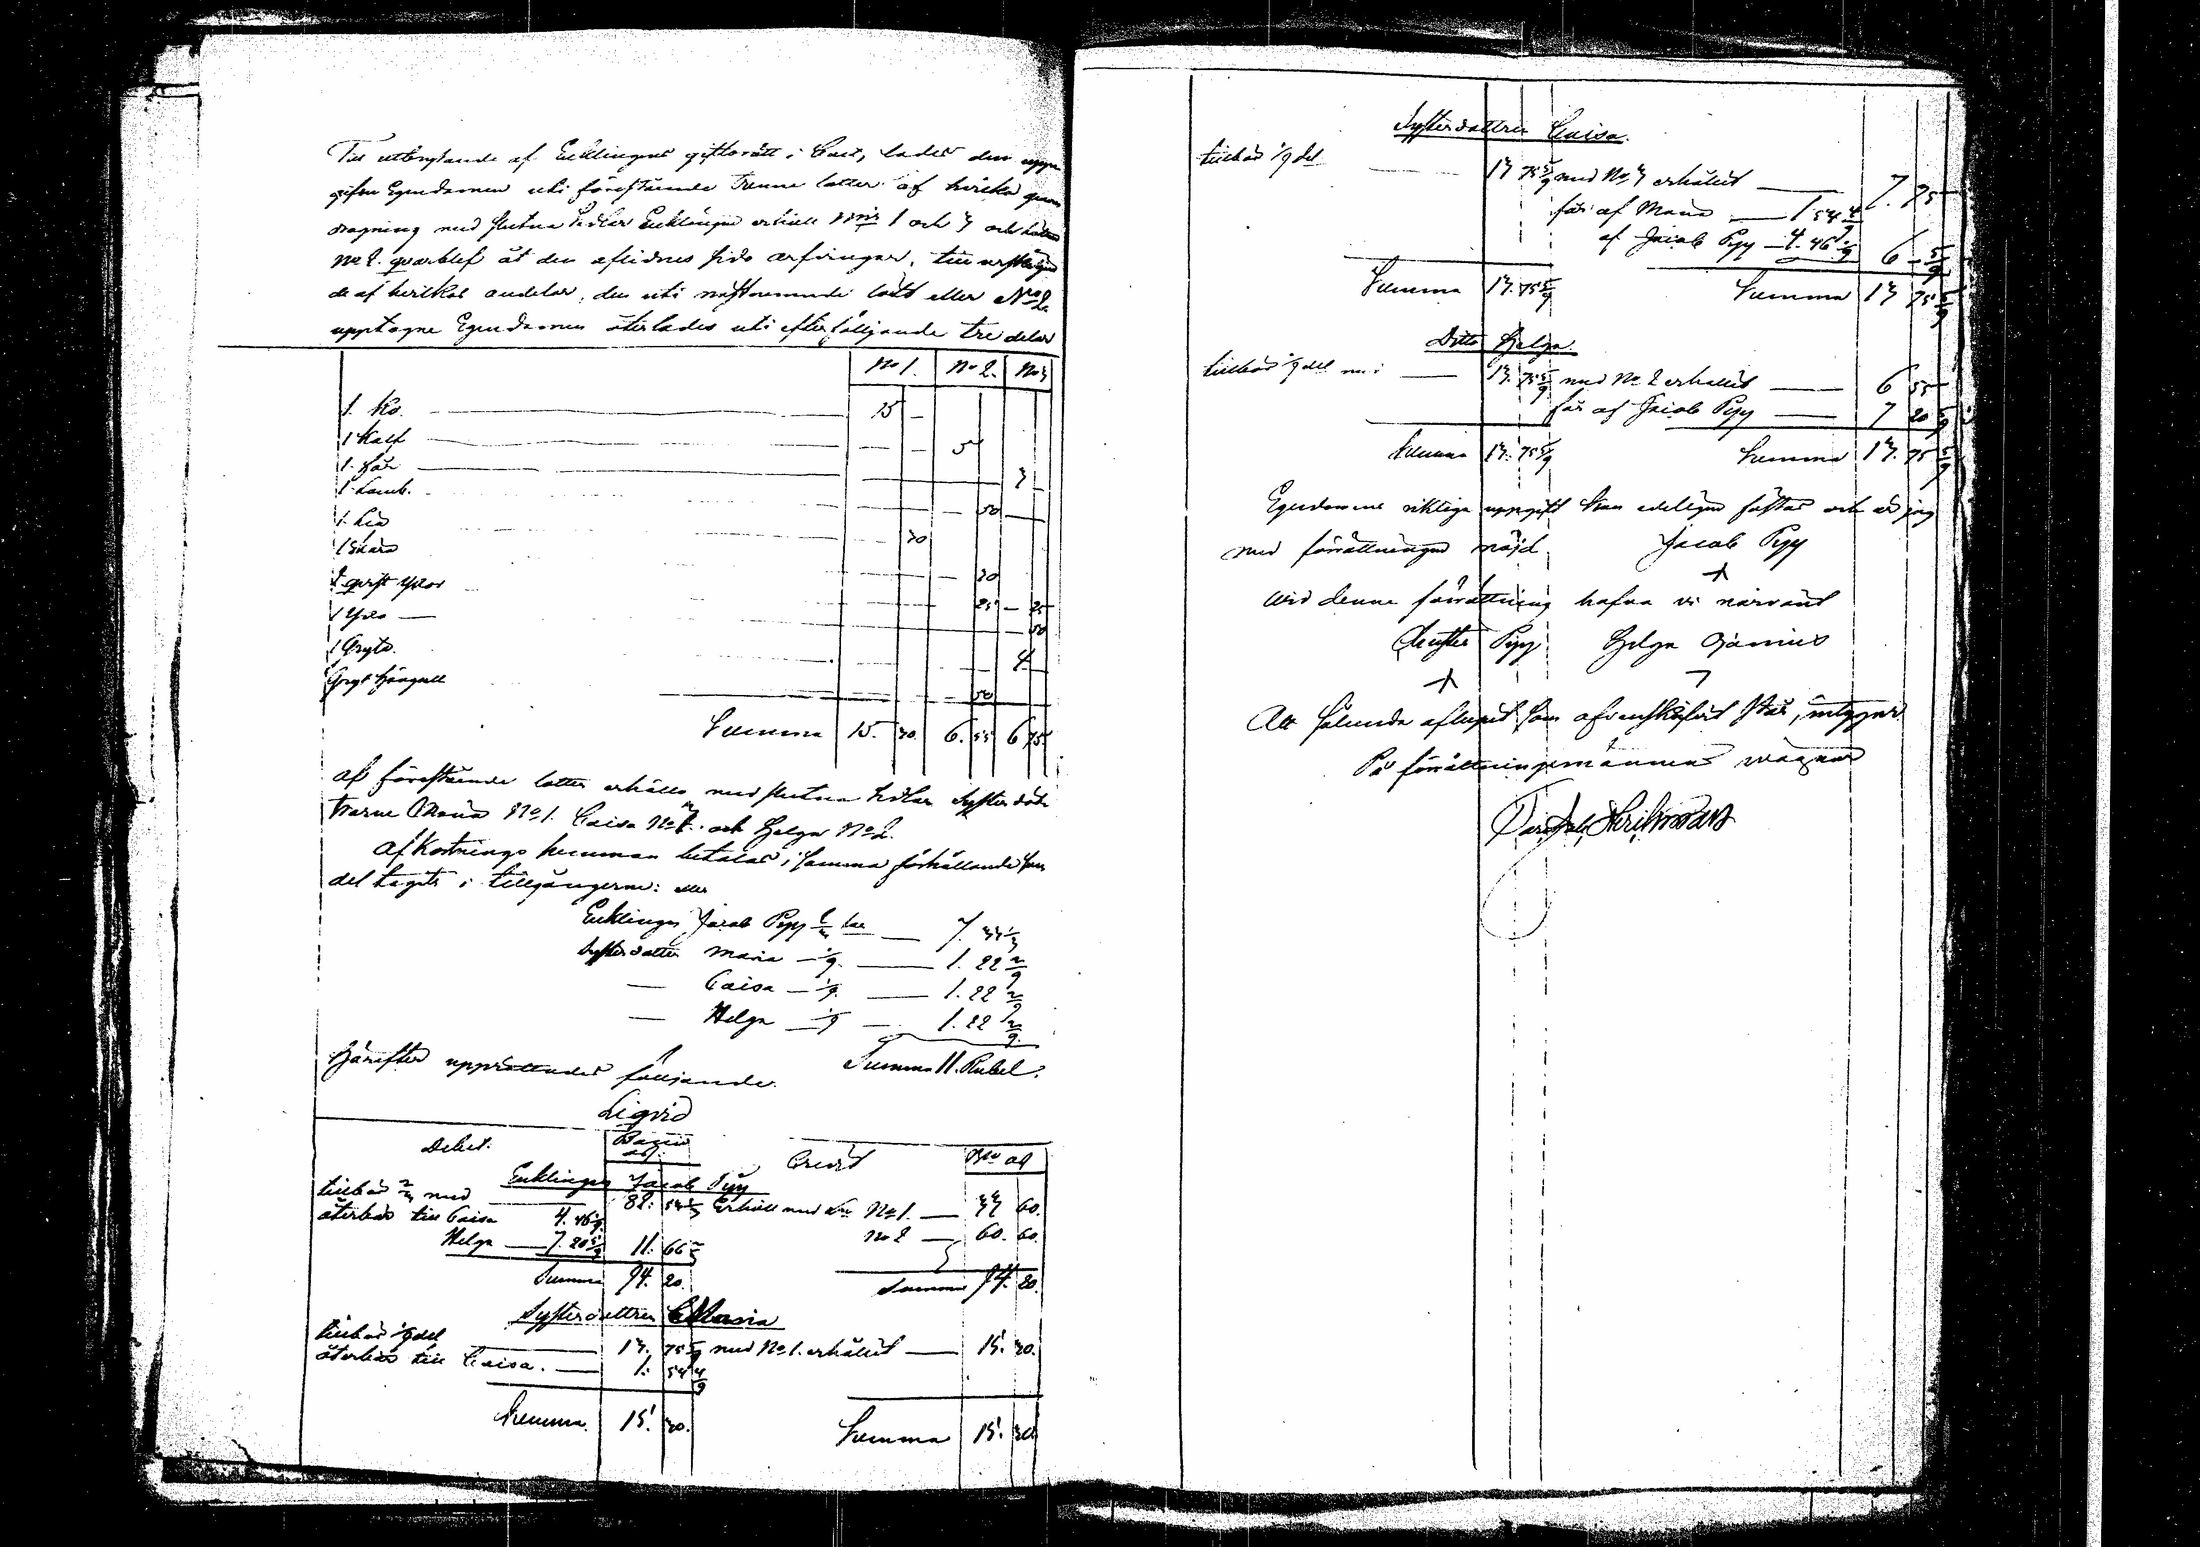 Till utbrytande af Enklingens giftorätt i boet, lades den uppe
gifne Egendomen uti föreståënde Trenne lotter af hvilka genom
dragning med slutna Sedlar Enklingen erhöll N:ris 1 och 3 och
N:o 2. qvarblef åt den aflidnes sido arfvingar,
de af hvilkas andelar, den uti nästnemnde lott eller N:o 2.
upptagne Egendomen återlades uti efterföljande tre delar
N:o 1. N:o 2. N:o 3
1. Ko. 15 —
1 Kalf — — 5
1. Får 3 —
1. Lamb. 50
1. Lia 30
1 Skära 30
2 25 — 25
1 50
1 Gryta. 4
Gryt hängsell 50
Summa 15. 30. 6. 55 6 75
Af föreståënde lotter erhöllo med slutna Sedlar Systerdött
rarne Maria N:o 1. Caisa N:o 3. och Helga N:o 2.
Afkortnings summan betalas i samma förhållande som
del tagits i tillgångerne: eller
Enklingen Jacob Pipp 2/3 7. 33 1/3
Systerdotter Maria — 1/9 — 1. 22 2/9
— Caisa — 1/9 — 1. 22 2/9
— Helga — 1/9 — 1. 22 2/9
Summa 11. Rubel.
Härefter upprättades följande.
Liqvid
Debet. Credit
Enklingen Jacob Pipp
tillkår 2/3 med 82. 53 1/3 Erhöll med N:o 1. — 33 60.
återbär till Caisa 4. 46 1/9 N:o 2 — 60. 60.
Helga — 7. 20 5/9 11. 66 2/3
Summa 94. 20. Summa 94. 20.
Systerdottren Maria
tillkår 1/9 del 13. 75 5/9 med N:o 1. erhållit — 15. 30.
återbär till Caisa. — 1. 54 4/9
Summa. 15. 30. Summa 15. 30
Systerdottren Caisa.
tillkår 1/9 del — 13 75 5/9 med N:o 3 erhållit — 7. 75
får af Maria — 1 54 4/9
af Jacob Pipp — 4. 46 1/9 6 — 5/9
Summa 13. 75 5/9 Summa 13 75 5/9
Ditto Helga.
tillkår 1/9 del — 13. 75 5/9 med N:o 2 erhållit — 6 55
får af Jacob Pipp — 7 20 5/9
Summa 13. 75 5/9 Summa 13. 75 5/9
Egendomens riktiga uppgift kan edeligen fästas och är jag
med förrättningen nöjd. Jacob Pipp
Wid denne förrättning hafva vi närvarit
Pipp Helga
Att sålunda aflupit som ofvanskrifvit står, intygar
På förrättningsmännens vägnar